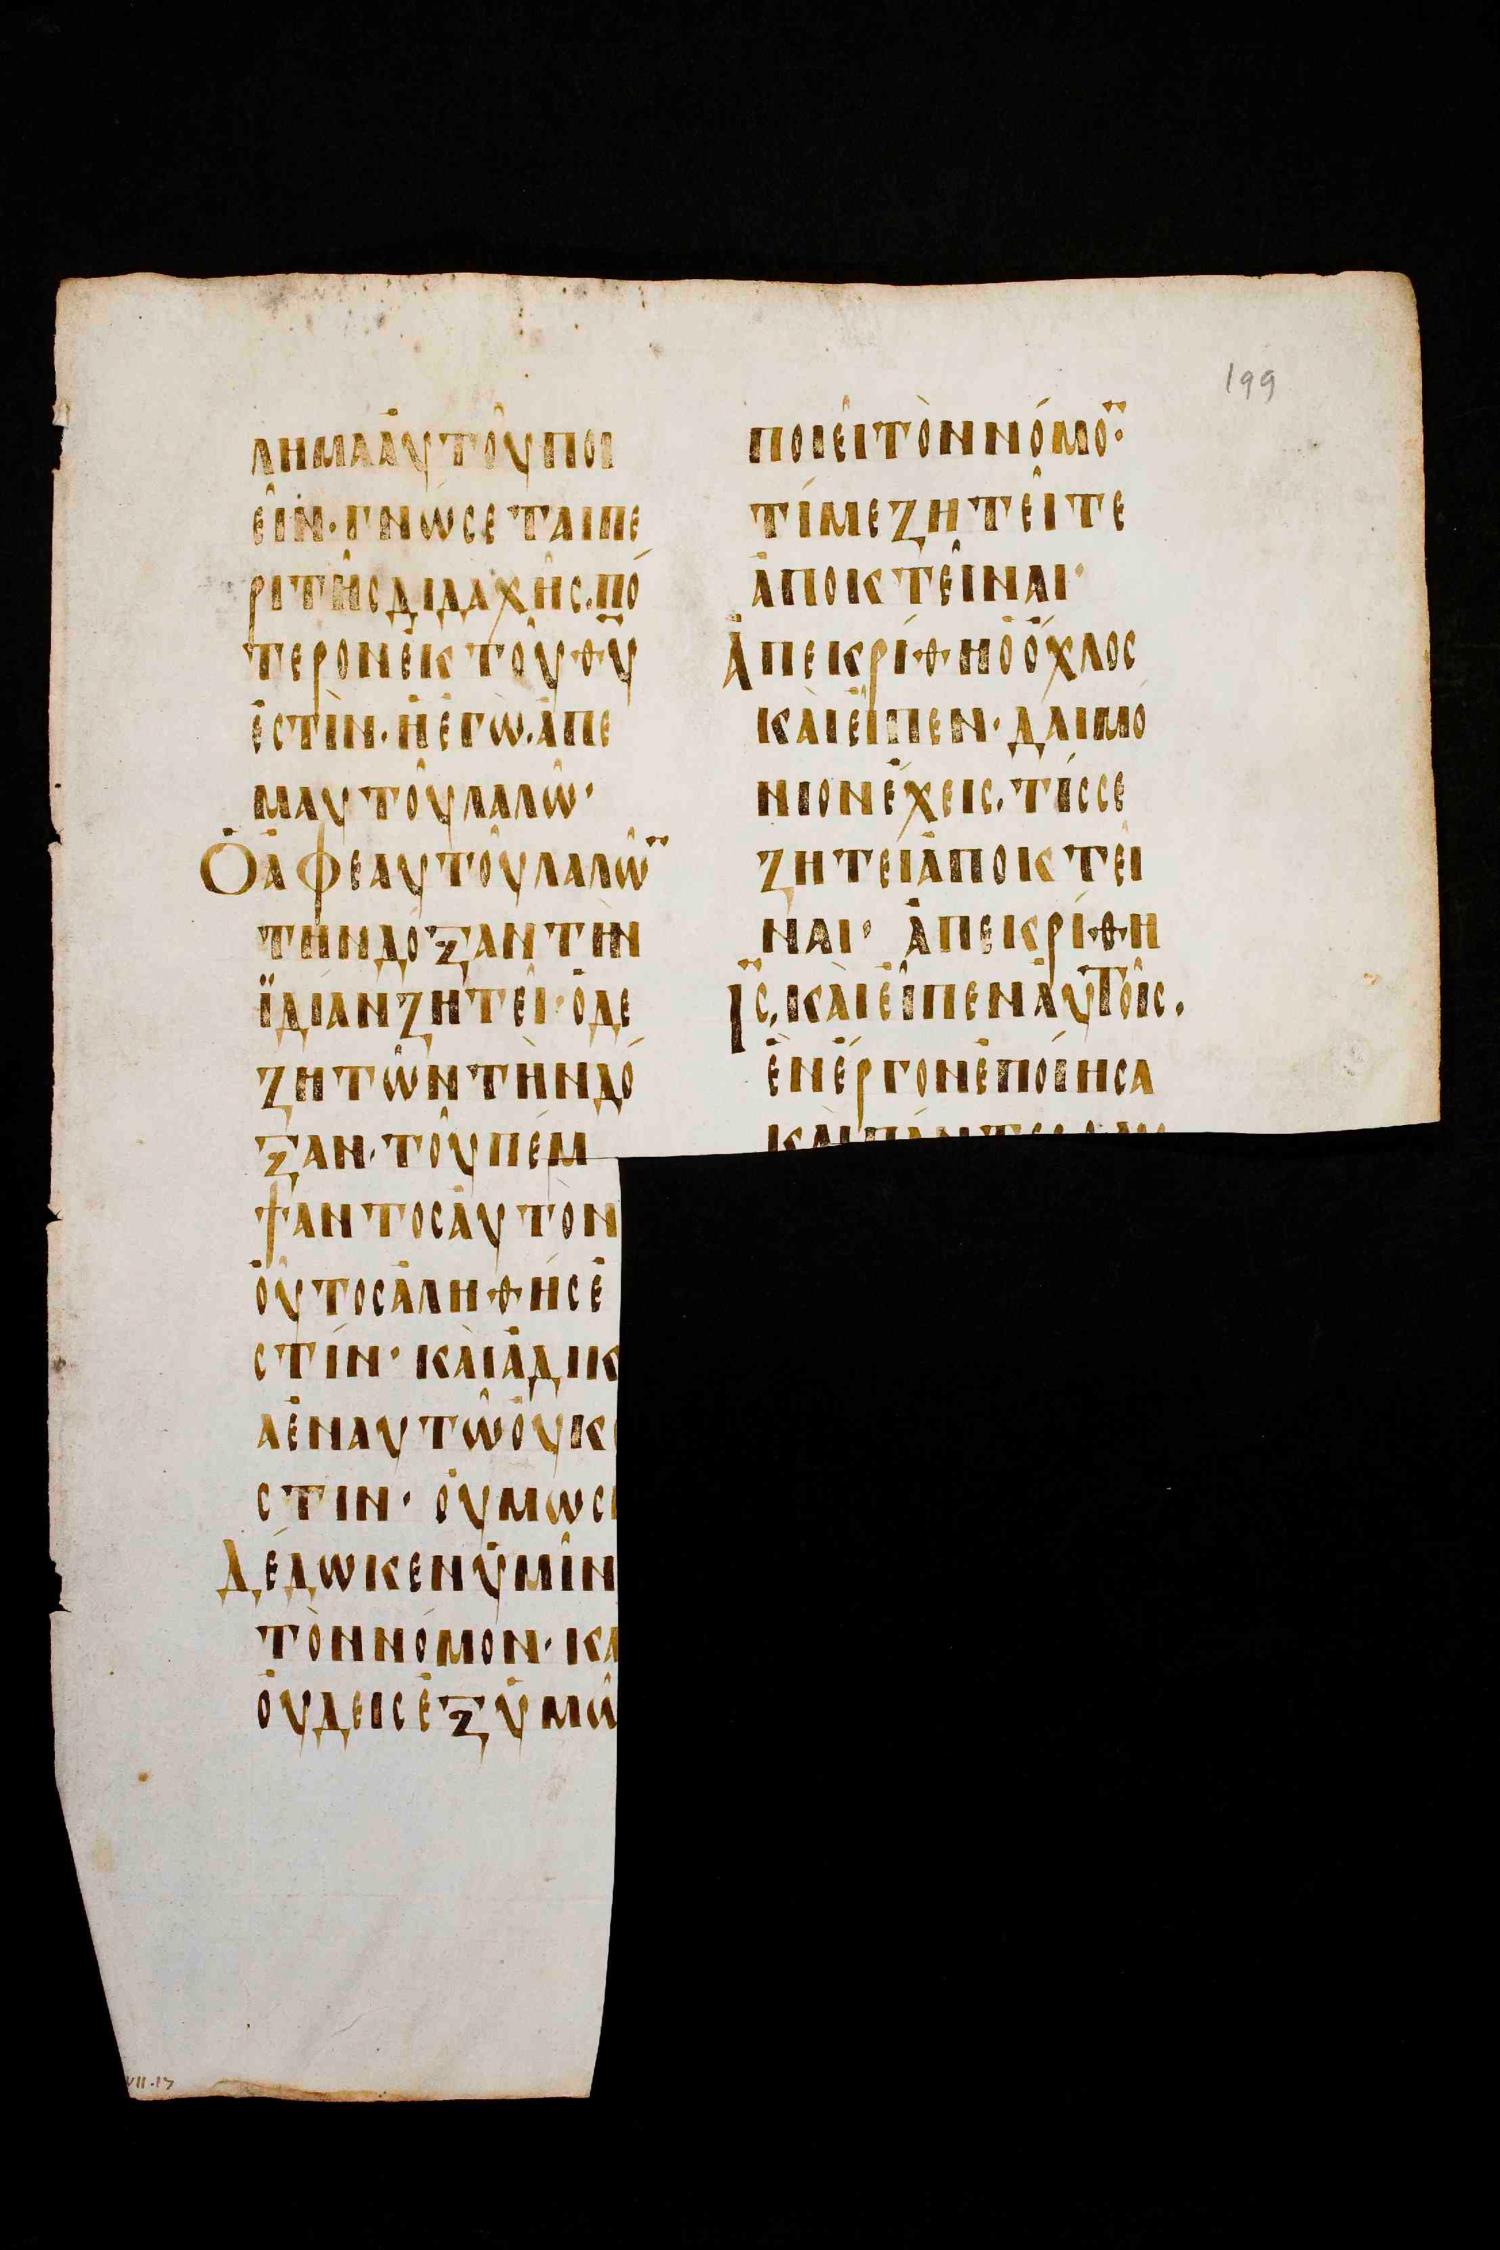 199
ΛΗΜΑΑΥΤΟΥΠΟΙ
ΕΙΝ·ΓΝΩΣΕΤΑΙΠΕ
ΡΙΤΗΣΔΙΔΑΧΗΣ.ΠΟ
ΤΕΡΟΝΕΚΤΟΥΘΥ
ΕΣΤΙΝ·ΗΕΓΩ.ΑΠΕ
ΜΑΥΤΟΥΛΑΛΩ·
ΟΑΦΕΑΥΤΟΥΛΑΛΩ
ΤΗΝΔΟΞΑΝΤΗΝ
ΪΔΙΑΝΖΗΤΕΙ·ΟΔΕ
ΖΗΤΩΝΤΗΝΔΟ
ΞΑΝ·ΤΟΥΠΕΜ
ΨΑΝΤΟΣΑΥΤΟΝ
ΟΥΤΟΣΑΛΗΘΗΣΕ
ΣΤΙΝ·ΚΑΙΑΔΙΚ
ΑΕΝΑΥΤΩΟΥΚ
ΣΤΙΝ· ΟΥΜΩΣ
ΔΕΔΩΚΕΝΥΜΙΝ
ΤΟΝΝΟΜΟΝ·ΚΑ
ΟΥΔΕΙΣΕΞΥΜΩ
ΠΟΙΕΙΤΟΝΝΟΜΟ·
ΤΙΜΕΖΗΤΕΙΤΕ
ΑΠΟΚΤΕΙΝΑΙ·
ΑΠΕΚΡΙΘΗΟΟΧΛΟΣ
ΚΑΙΕΙΠΕΝ·ΔΑΙΜΟ
ΝΙΟΝΕΧΕΙΣ.ΤΙΣΣΕ
ΖΗΤΕΙΑΠΟΚΤΕΙ
ΝΑΙ· ΑΠΕΚΡΙΘΗ
ΙΣ.ΚΑΙΕΙΠΕΝΑΥΤΟΙΣ.
ΕΝΕΡΓΟΝΕΠΟΙΗΣΑ
ΚΑΙΠΑΝΤΕΣ
VII.17